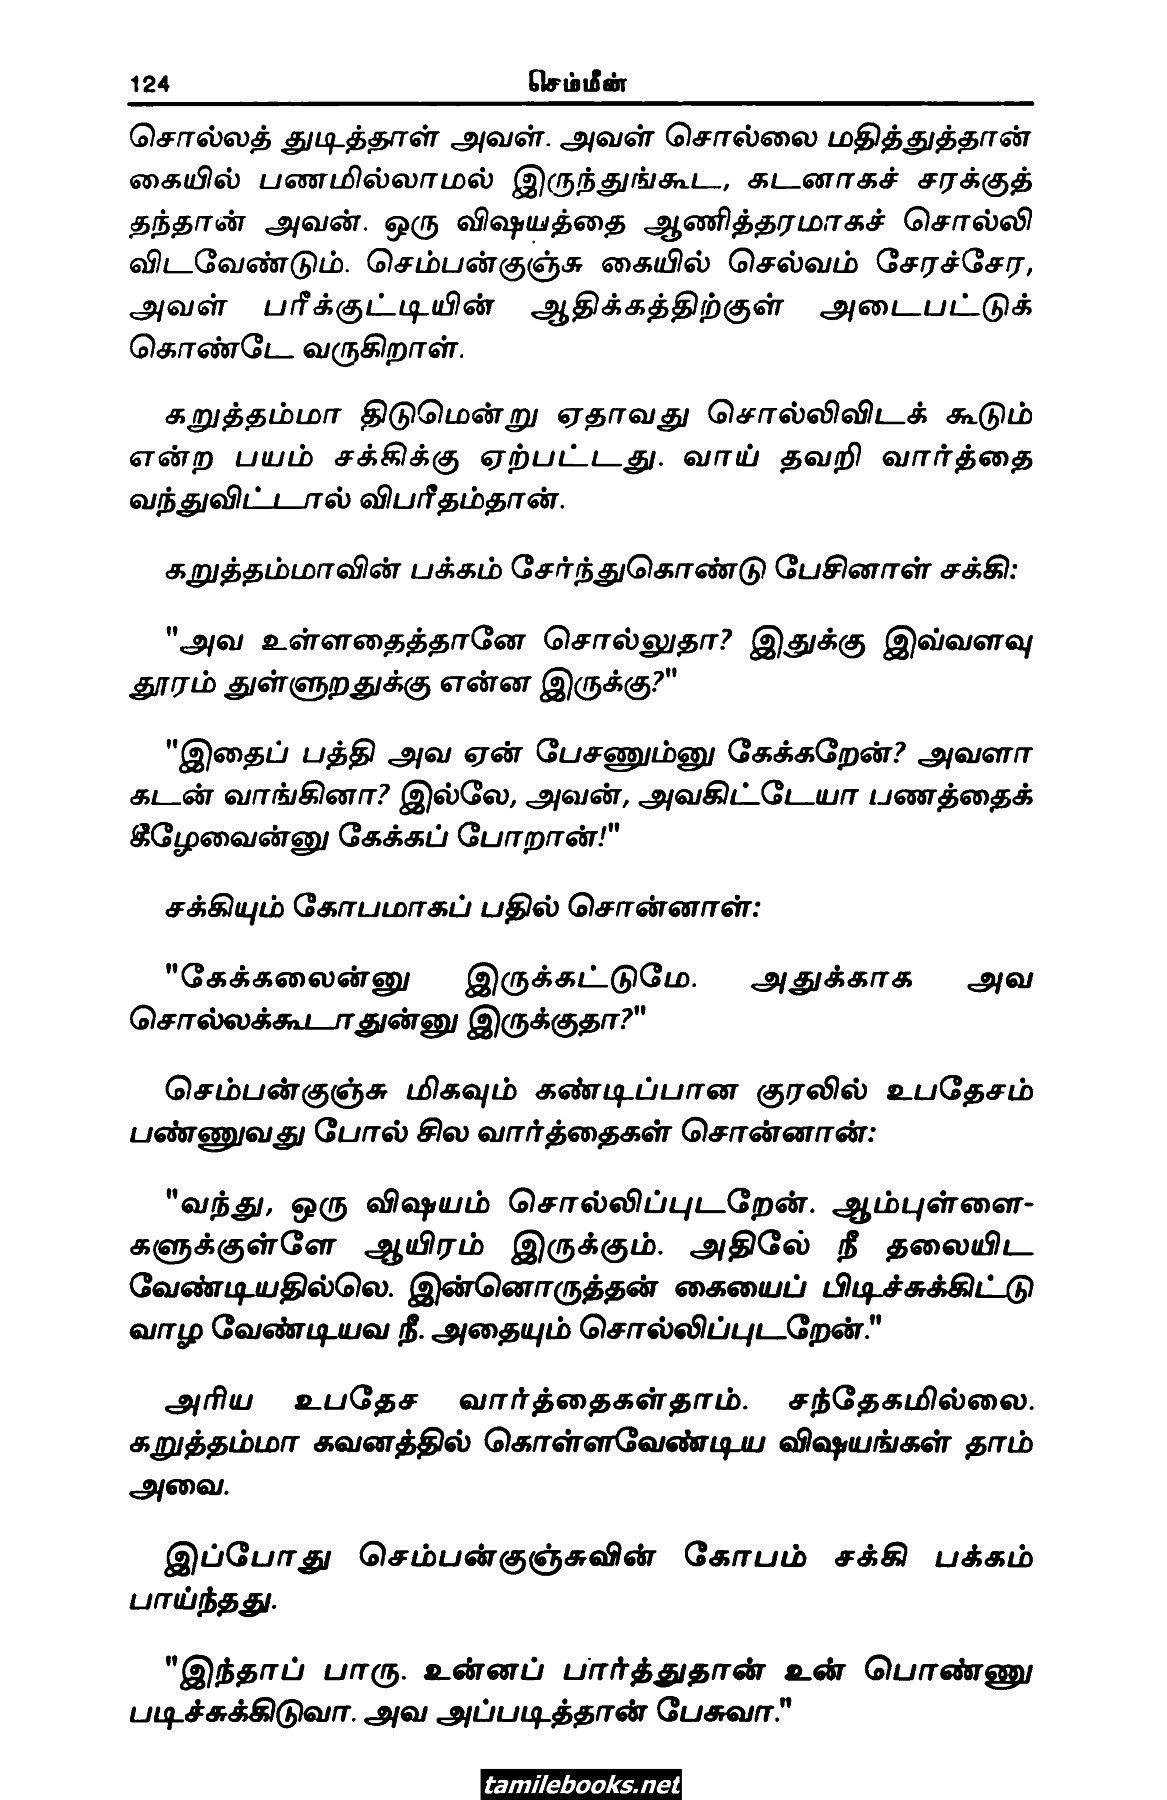 124
செம்மீன்
சொல்லத் துடித்தாள் அவள். அவள் சொல்லை மதித்துத்தான்
கையில் பணமில்லாமல் இருந்துங்கூட, கடனாகச் சரக்குத்
தந்தான் அவன். ஒரு விஷயத்தை ஆணித்தரமாகச் சொல்லி
விடவேண்டும். செம்பன்குஞ்சு கையில் செல்வம் சேரச்சேர,
அவள் பரீக்குட்டியின் ஆதிக்கத்திற்குள் அடைபட்டுக்
கொண்டே வருகிறாள்.
கறுத்தம்மா திடுமென்று ஏதாவது சொல்லிவிடக் கூடும்
என்ற பயம் சக்கிக்கு ஏற்பட்டது. வாய் தவறி வார்த்தை
வந்துவிட்டால் விபரீதம்தான்.
கறுத்தம்மாவின் பக்கம் சேர்ந்துகொண்டு பேசினாள் சக்கி:
"அவ உள்ளதைத்தானே சொல்லுதா? இதுக்கு இவ்வளவு
தூரம் துள்ளுறதுக்கு என்ன இருக்கு?"
"இதைப் பத்தி அவ ஏன் பேசணும்னு கேக்கறேன்? அவளா
கடன் வாங்கினா? இல்லே, அவன், அவகிட்டேயா பணத்தைக்
கீழேவைன்னு கேக்கப் போறான்!"
சக்கியும் கோபமாகப் பதில் சொன்னாள்:
"கேக்கலைன்னு இருக்கட்டுமே. அதுக்காக அவ
சொல்லக்கூடாதுன்னு இருக்குதா?"
செம்பன்குஞ்சு மிகவும் கண்டிப்பான குரலில் உபதேசம்
பண்ணுவது போல் சில வார்த்தைகள் சொன்னான்:
"வந்து, ஒரு விஷயம் சொல்லிப்புடறேன். ஆம்புள்ளை-
களுக்குள்ளே ஆயிரம் இருக்கும். அதிலே நீ தலையிட
வேண்டியதில்லெ. இன்னொருத்தன் கையைப் பிடிச்சுக்கிட்டு
வாழ வேண்டியவ நீ. அதையும் சொல்லிப்புடறேன்."
அரிய உபதேச வார்த்தைகள்தாம். சந்தேகமில்லை.
கறுத்தம்மா கவனத்தில் கொள்ளவேண்டிய விஷயங்கள் தாம்
அவை.
இப்போது செம்பன்குஞ்சுவின் கோபம் சக்கி பக்கம்
பாய்ந்தது.
"இந்தாப் பாரு. உன்னப் பார்த்துதான் உன் பொண்ணு
படிச்சுக்கிடுவா. அவ அப்படித்தான் பேசுவா."
tamilebooks.net